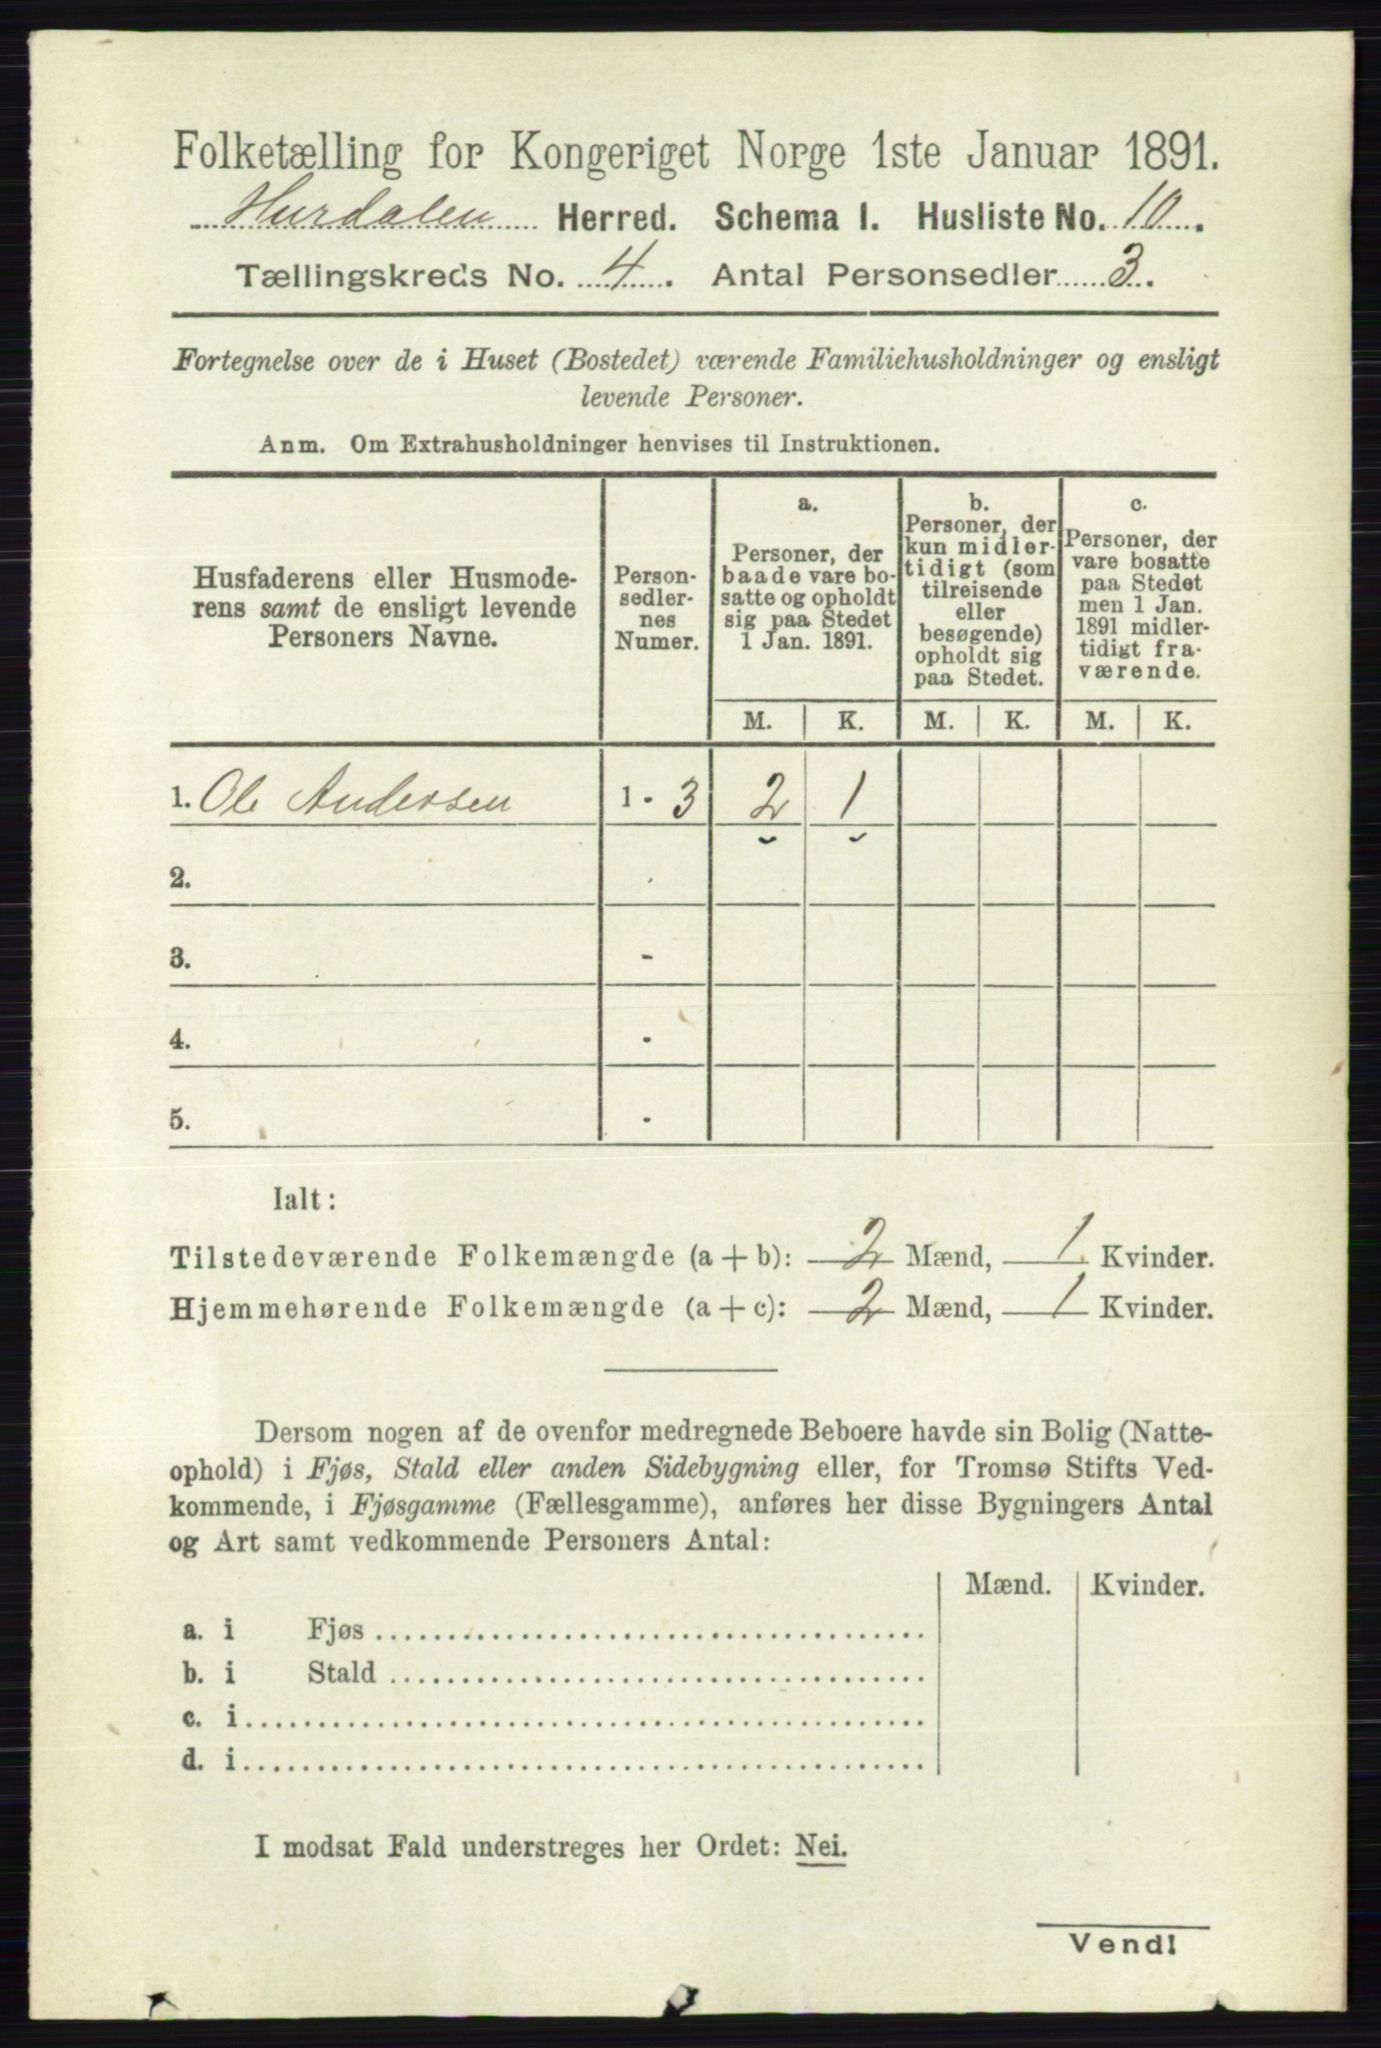 Folketælling for Kongeriget Norge 1ste Januar 1891.
Hurdalen Herred. Schema I. Husliste No. 10.
Tællingskreds No. 4. Antal Personsedler 3.
Fortegnelse over de i Huset (Bostedet) værende Familiehusholdninger og ensligt
levende Personer.
Anm. Om Extrahusholdninger henvises til Instruktionen.
Husfaderens eller Husmode-
rens samt de ensligt levende
Personers Navne.
Person-
sedler-
nes
Numer.
a.
Personer, der
baade vare bo-
satte og opholdt
sig paa Stedet
1 Jan. 1891.
b.
Personer, der
kun midler-
tidigt (som
tilreisende
eller
besøgende)
opholdt sig
paa Stedet.
c.
Personer, der
vare bosatte
paa Stedet
men 1 Jan.
1891 midler-
tidigt fra-
værende.
M. K. M. K. M. K.
1. Ole Andersen 1 - 3 2 1
2.
3. -
4. -
5. -
Ialt:
Tilstedeværende Folkemængde (a + b): 2 Mænd, 1 Kvinder.
Hjemmehørende Folkemængde (a + c): 2 Mænd, 1 Kvinder.
Dersom nogen af de ovenfor medregnede Beboere havde sin Bolig (Natte-
ophold) i Fjøs, Stald eller anden Sidebygning eller, for Tromsø Stifts Ved-
kommende, i Fjøsgamme (Fællesgamme), anføres her disse Bygningers Antal
og Art samt vedkommende Personers Antal:
Mænd. Kvinder.
a. i Fjøs
b. i Stald
c. i
d. i
I modsat Fald understreges her Ordet: Nei.
Vend!